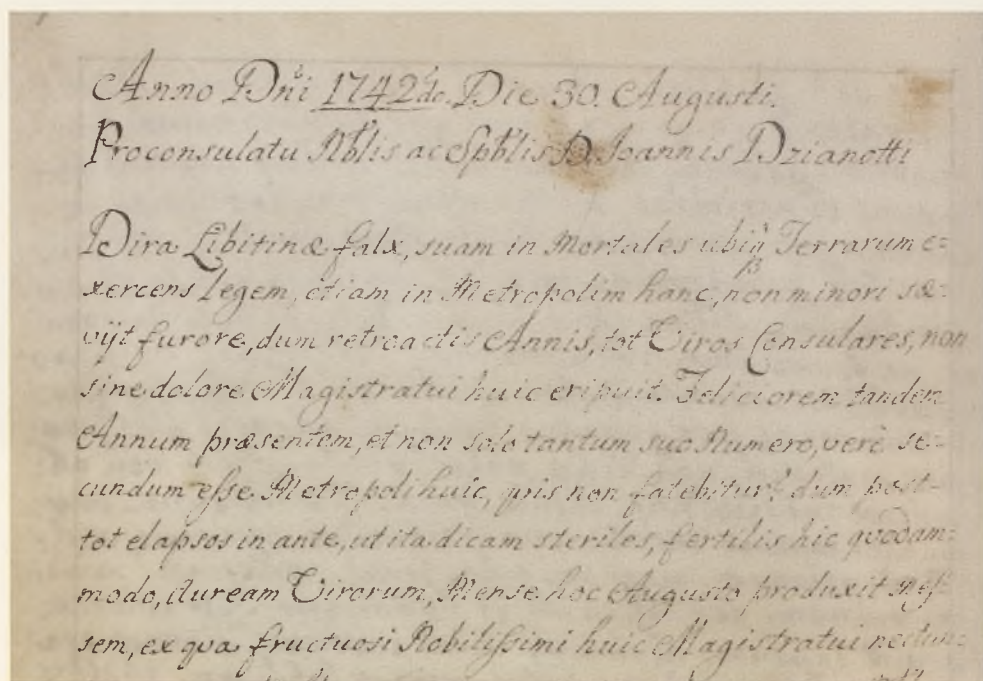 Anno Dni 1742do. Die 30. Augusti.
Proconsulatu Nblis ac Spblis D. Joannis Dzianotti
Dira Libitinæ falx, suam in Mortales ubiq Terrarum e=
xercens legem, etiam in Metropolim hanc, non minori sæ=
vijt furore, dum retroactis Annis, tot Viros Consulares, non
sine dolore Magistratui huic eripuit. Feliciorem tandem
Annum præsentem, et non solo tantum suo Numero, verè se=
cundum esse Metropoli huic, quis non fatebitur? dum post
tot elapsos in ante, ut ita dicam steriles, fertilis hic quodam=
modo, auream Virorum, Mense hoc Augusto produxit Mes=
sem, ex qua fructuosi Nobilissimi huic Magistratui